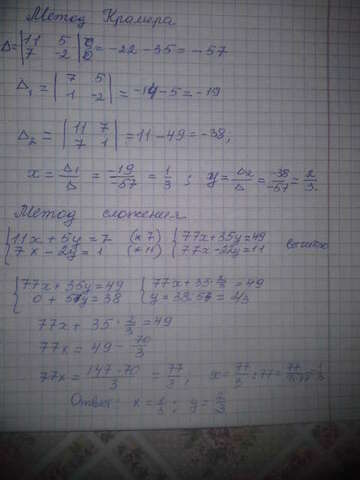 Метод Крамера
Δ = |11 5; 7 -2| = -22 - 35 = -57
Δ₁ = |7 5; 1 -2| = -14 - 5 = -19
Δ₂ = |11 7; 7 1| = 11 - 49 = -38;
x = Δ1/Δ = -19/-57 = 1/3 ; y = Δ2/Δ = -38/-57 = 2/3.
Метод сложения
{11x + 5y = 7 (*7) {77x + 35y = 49
{7x - 2y = 1 (*11) {77x - 22y = 11
{77x + 35y = 49 {77x + 35·2/3 = 49
{0 + 57y = 38 {y = 38:57 = 2/3
77x + 35·2/3 = 49
77x = 49 - 70/3
77x = 147-70/3 = 77/3; x = 77/3 : 77 = 77/3·77 = 1/3
Ответ: x = 1/3 ; y = 2/3